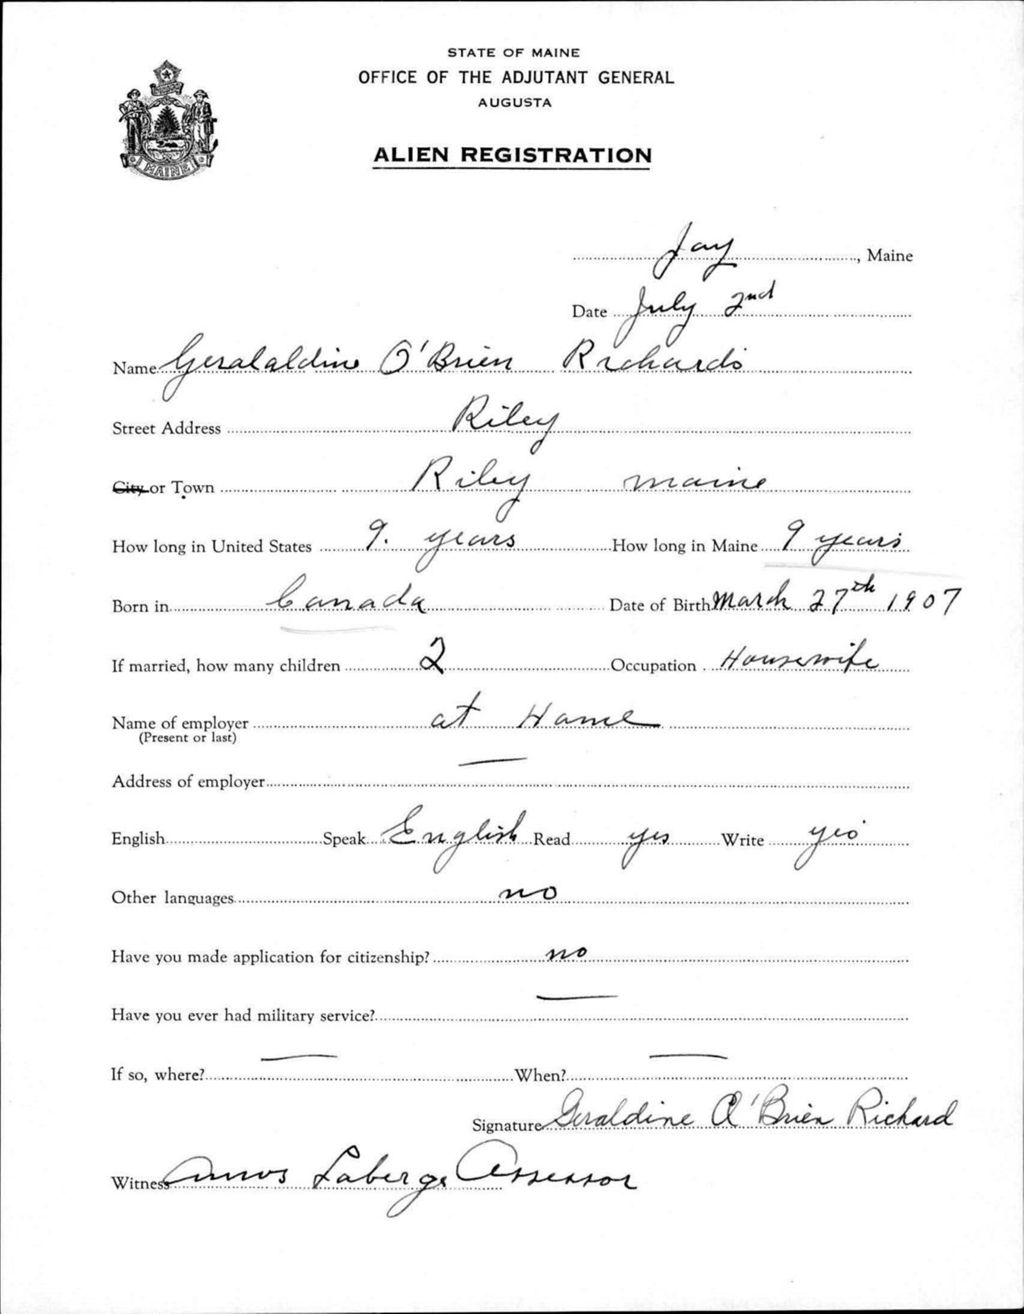 STATE OF MAINE
OFFICE OF THE ADJUTANT GENERAL
AUGUSTA
ALIEN REGISTRATION
MAINE
Jay, Maine
Date July 2nd
Name Geralaldine O'Brien Richards
Street Address Riley
City or Town Riley maine
How long in United States 9. years How long in Maine 9 years
Born in Canada Date of Birth March 27th 1907
If married, how many children 2 Occupation Housewife
Name of employer at Home
(Present or last)
Address of employer —
English Speak English Read yes Write yes
Other languages no
Have you made application for citizenship? no
Have you ever had military service? —
If so, where? — When? —
Signature Geraldine O'Brien Richard
Witness Amos Laberge Assessor